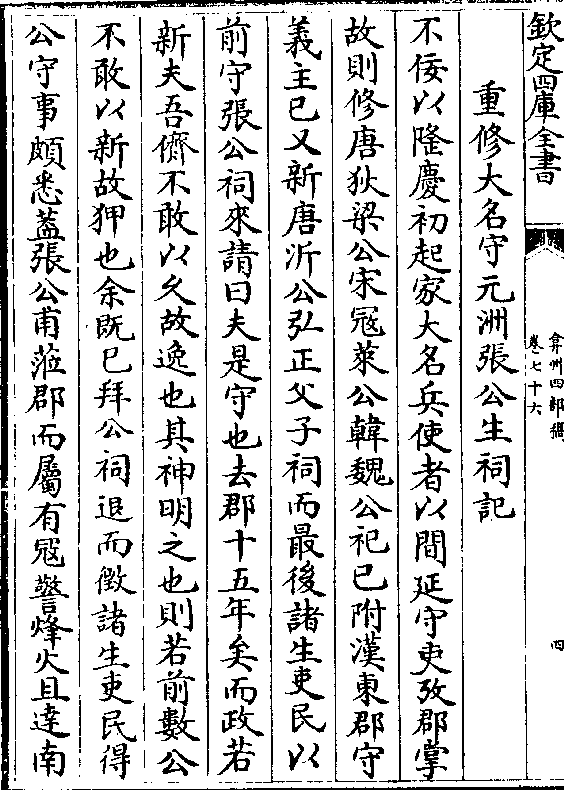 欽定四庫全書
弇州四部稿
卷七十六
四
重修大名守元洲張公生祠記
不佞以隆慶初起家大名兵使者以間延守吏攷郡掌
故則修唐狄梁公宋寇萊公韓魏公祀已附漢東郡守
義主已又新唐沂公弘正父子祠而最後諸生吏民以
前守張公祠來請曰夫是守也去郡十五年矣而政若
新夫吾儕不敢以久故逸也其神明之也則若前數公
不敢以新故狎也余既已拜公祠退而徵諸生吏民得
公守事頗悉蓋張公甫蒞郡而屬有寇警烽火且達南